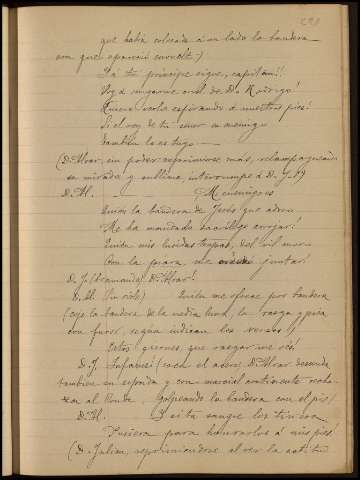 que había colocada á un lado la bandera
con que apareció envuelto)
Ya tu príncipe sigue, capitán!!
Voy á vengarme cruel de D. Rodrigo!
Quiero verlo espirando á nuestros pies!
Si el rey de tu amor es enemigo
También lo es tuyo —
(D. Alvar, sin poder reprimirse más, relampagueando
su mirada y sublime, interrumpe á D. J.)
D. Al. Mi enemigo es
la bandera de Jesús que adoro
Me ha mandado sacrílego arrojar!
mis lucidas tropas, del vil moro
Con la para, me juntar!
D. J. (Avanzando) D. Alvar!
D. Al. me ofrece por bandera
(coje la bandera de la media luna, la rasga y pisa
con furor, según indican los versos)
Estos girones, que rasgar me vés!
D. J. Infame! (saca el acero, D. Alvar desnuda
también su espada y con marcial continente recha-
za al Conde. Golpeando la bandera con el pié)
D. Al. Y si tu sangre los tiñera
Pusiera para honrarlos á mis pies!
(D. Julian, reprimiéndose al ver la actitud